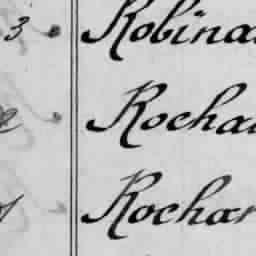 3 Robina
Rocha
Rochar